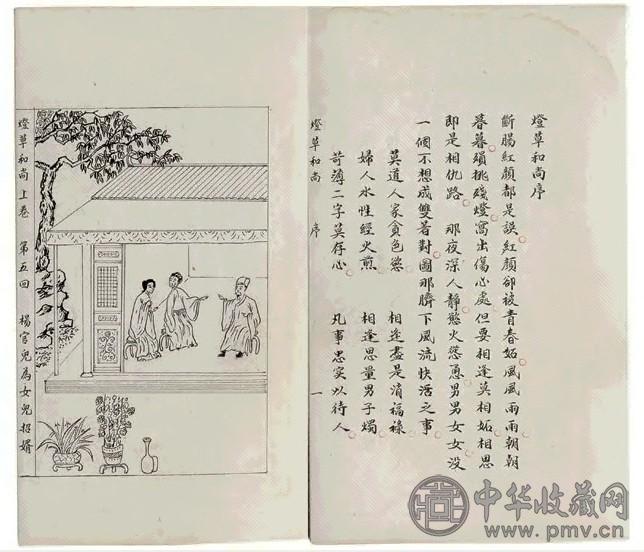 燈草和尚序
斷腸紅顏都是誤紅顏卻被青春妬風風雨雨朝朝
暮暮頻挑殘燈寫出傷心處但要相逢莫相妬相思
即是相仇路 那夜深人靜慾火慫恿男男女女沒
一個不想成雙著對圖那臍下風流快活之事
莫道人家貪色慾 相逢盡是消福祿
婦人水性經火煎 相逢思量男子燭
苛薄二字莫存心 凡事忠實以待人
燈草和尚 序 一
燈草和尚 上卷 第五回 楊官兒為女兒招婿
中华收藏网
www.pmv.cn